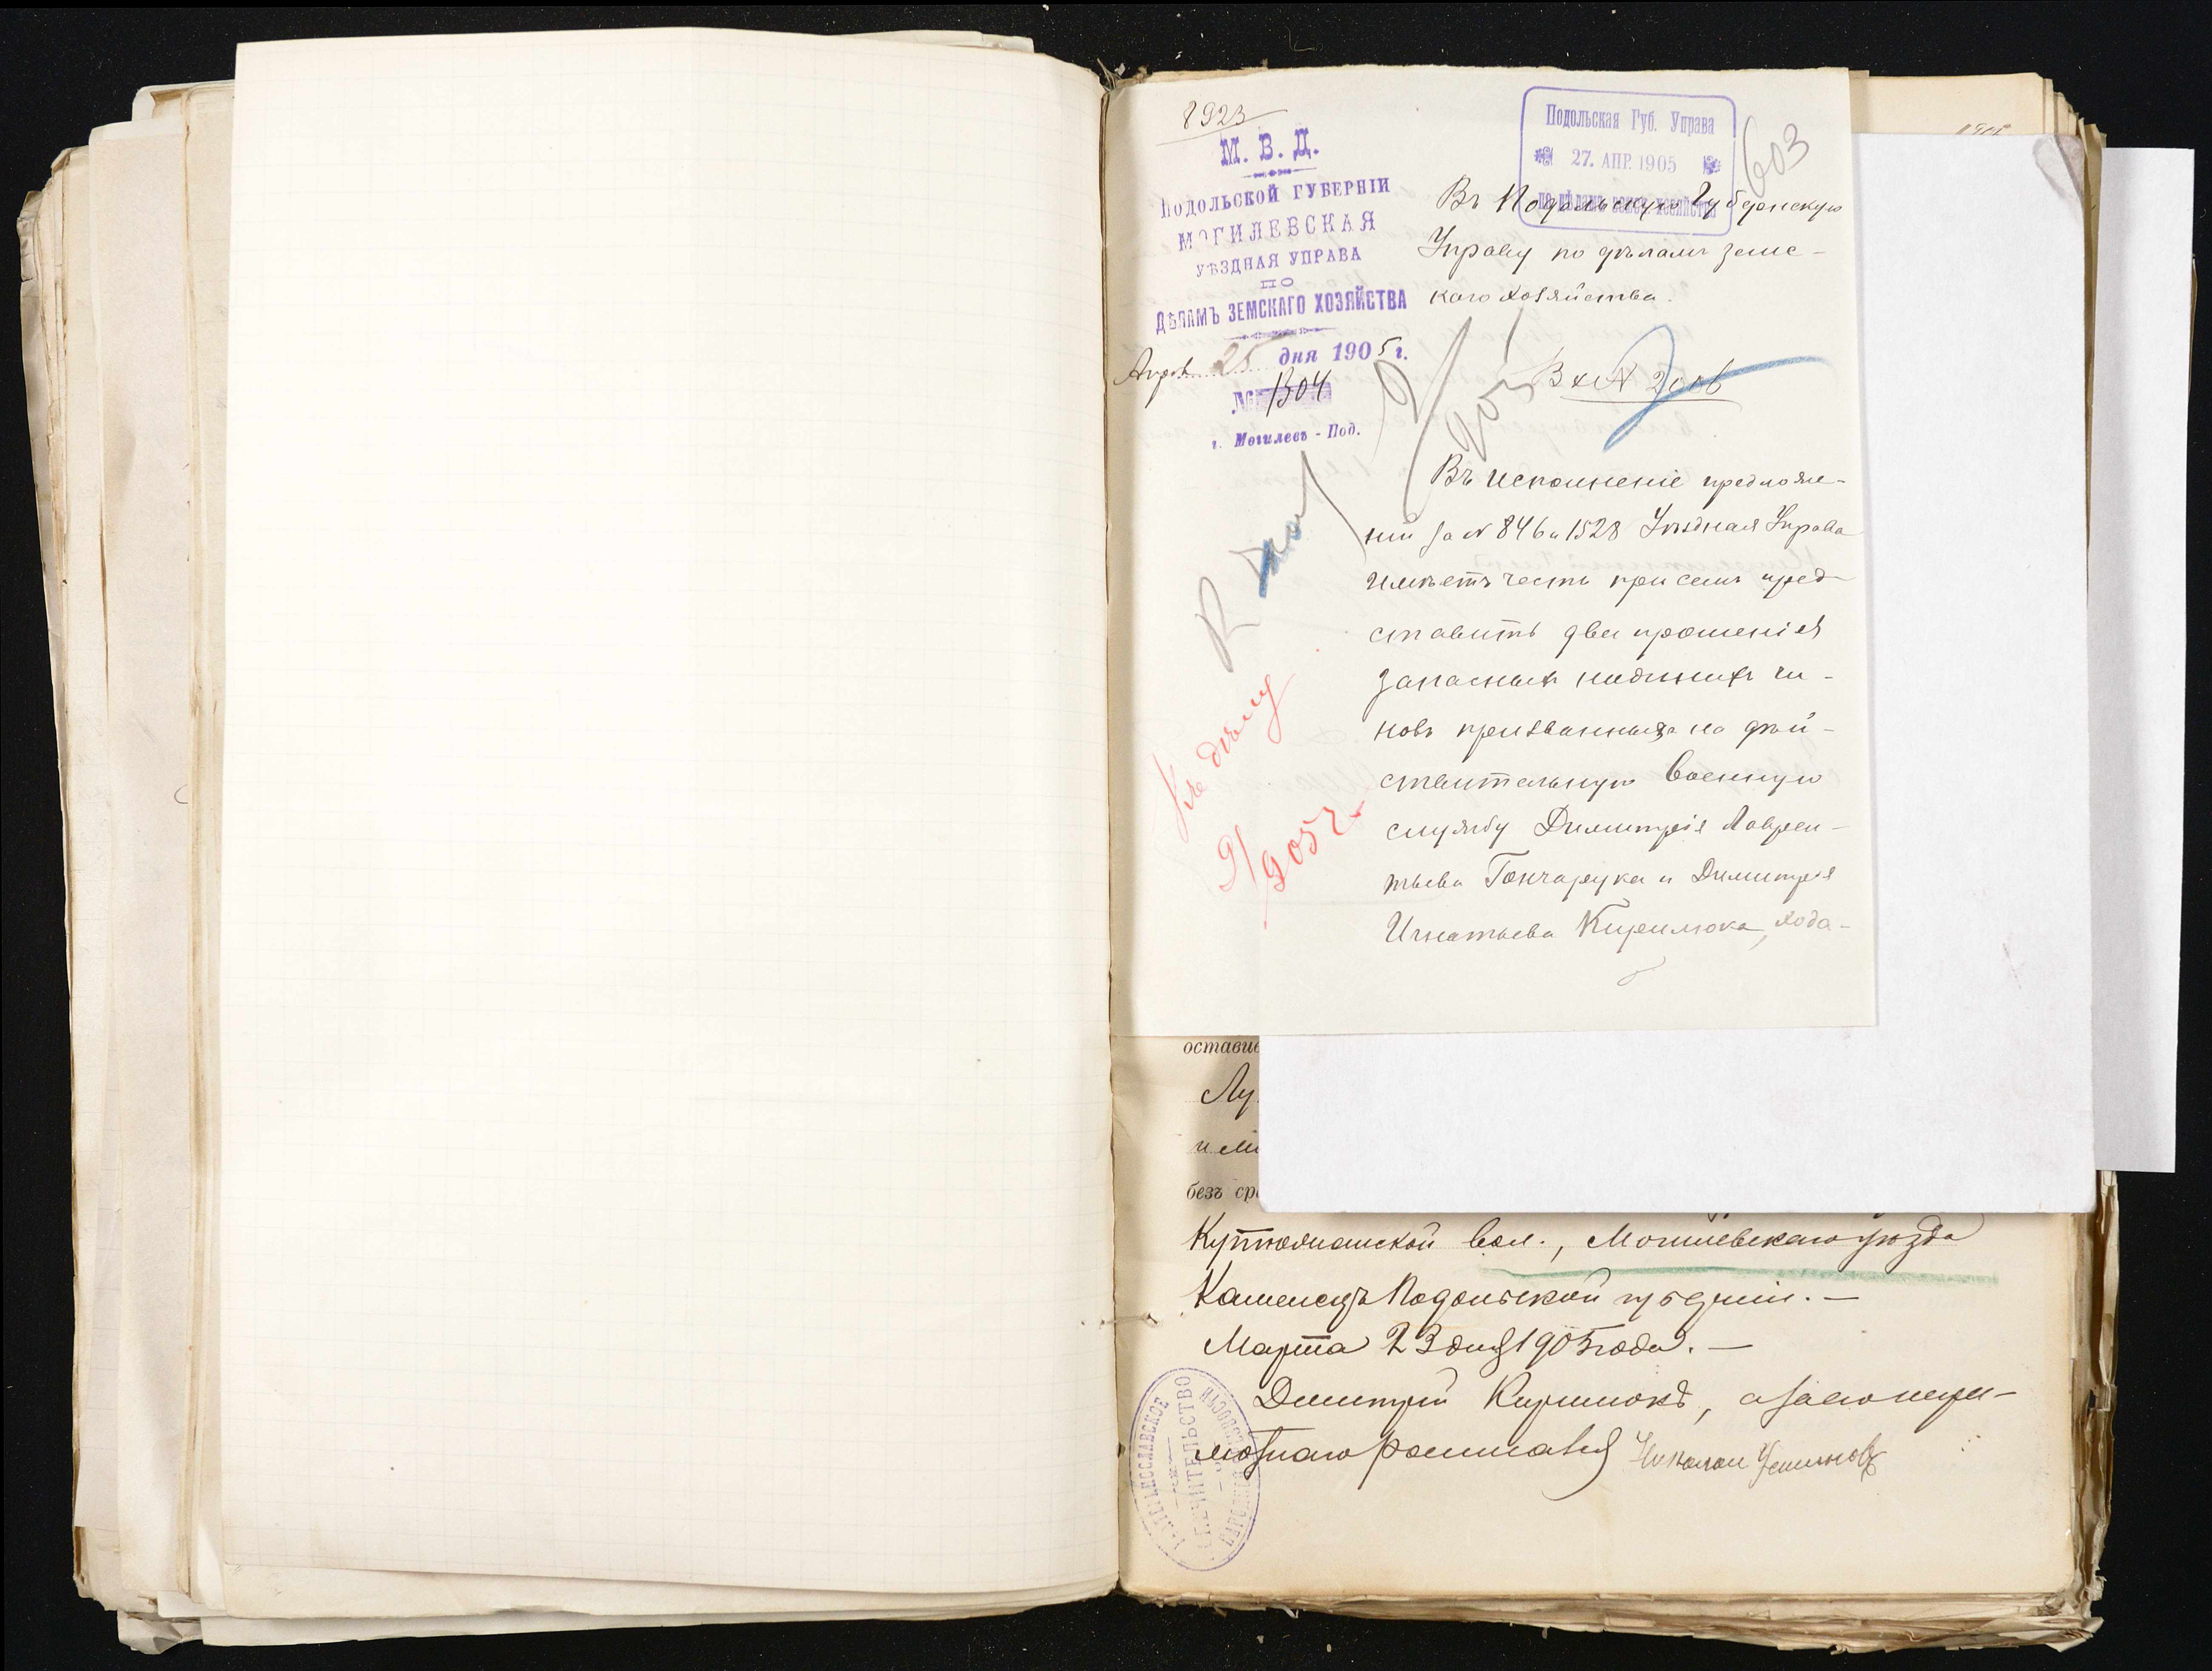 8923
М. В. Д.
ПОДОЛЬСКОЙ ГУБЕРНІИ
МОГИЛЕВСКАЯ
УѢЗДНАЯ УПРАВА
ПО
ДѢЛАМЪ ЗЕМСКАГО ХОЗЯЙСТВА
Апрѣл 25 дня 1905 г.
№ 1304
г. Могилевъ - Под.
Подольская Губ. Управа
27. АПР. 1905
по дѣламъ земск. хозяйства
603
Въ Подольскую Губернскую
Управу по дѣламъ земс-
каго хозяйства.
Вх №
Въ исполненіе предложе-
ній за № 846 и 1528 Уѣздная Управа
имѣетъ честь при семъ пред-
ставить два прошенія
запасныхъ нижнихъ чи-
новъ призванныхъ на дѣй-
ствительную военную
службу Димитрія Лаврен-
тьева Гончарука и Димитрія
Игнатьева Кирилюка, хода-
Къ дѣлу
9/
905 г.
оставив
Лу
и ли
безъ ср
вол., Могилевскаго уѣзда
Каменецъ Подольской губерніи. —
Марта 23 дня 1905 года. —
Димитрій Кирилюкъ, а за его негра-
мотнаго росписался Николай
ПОПЕЧИТЕЛЬСТВО